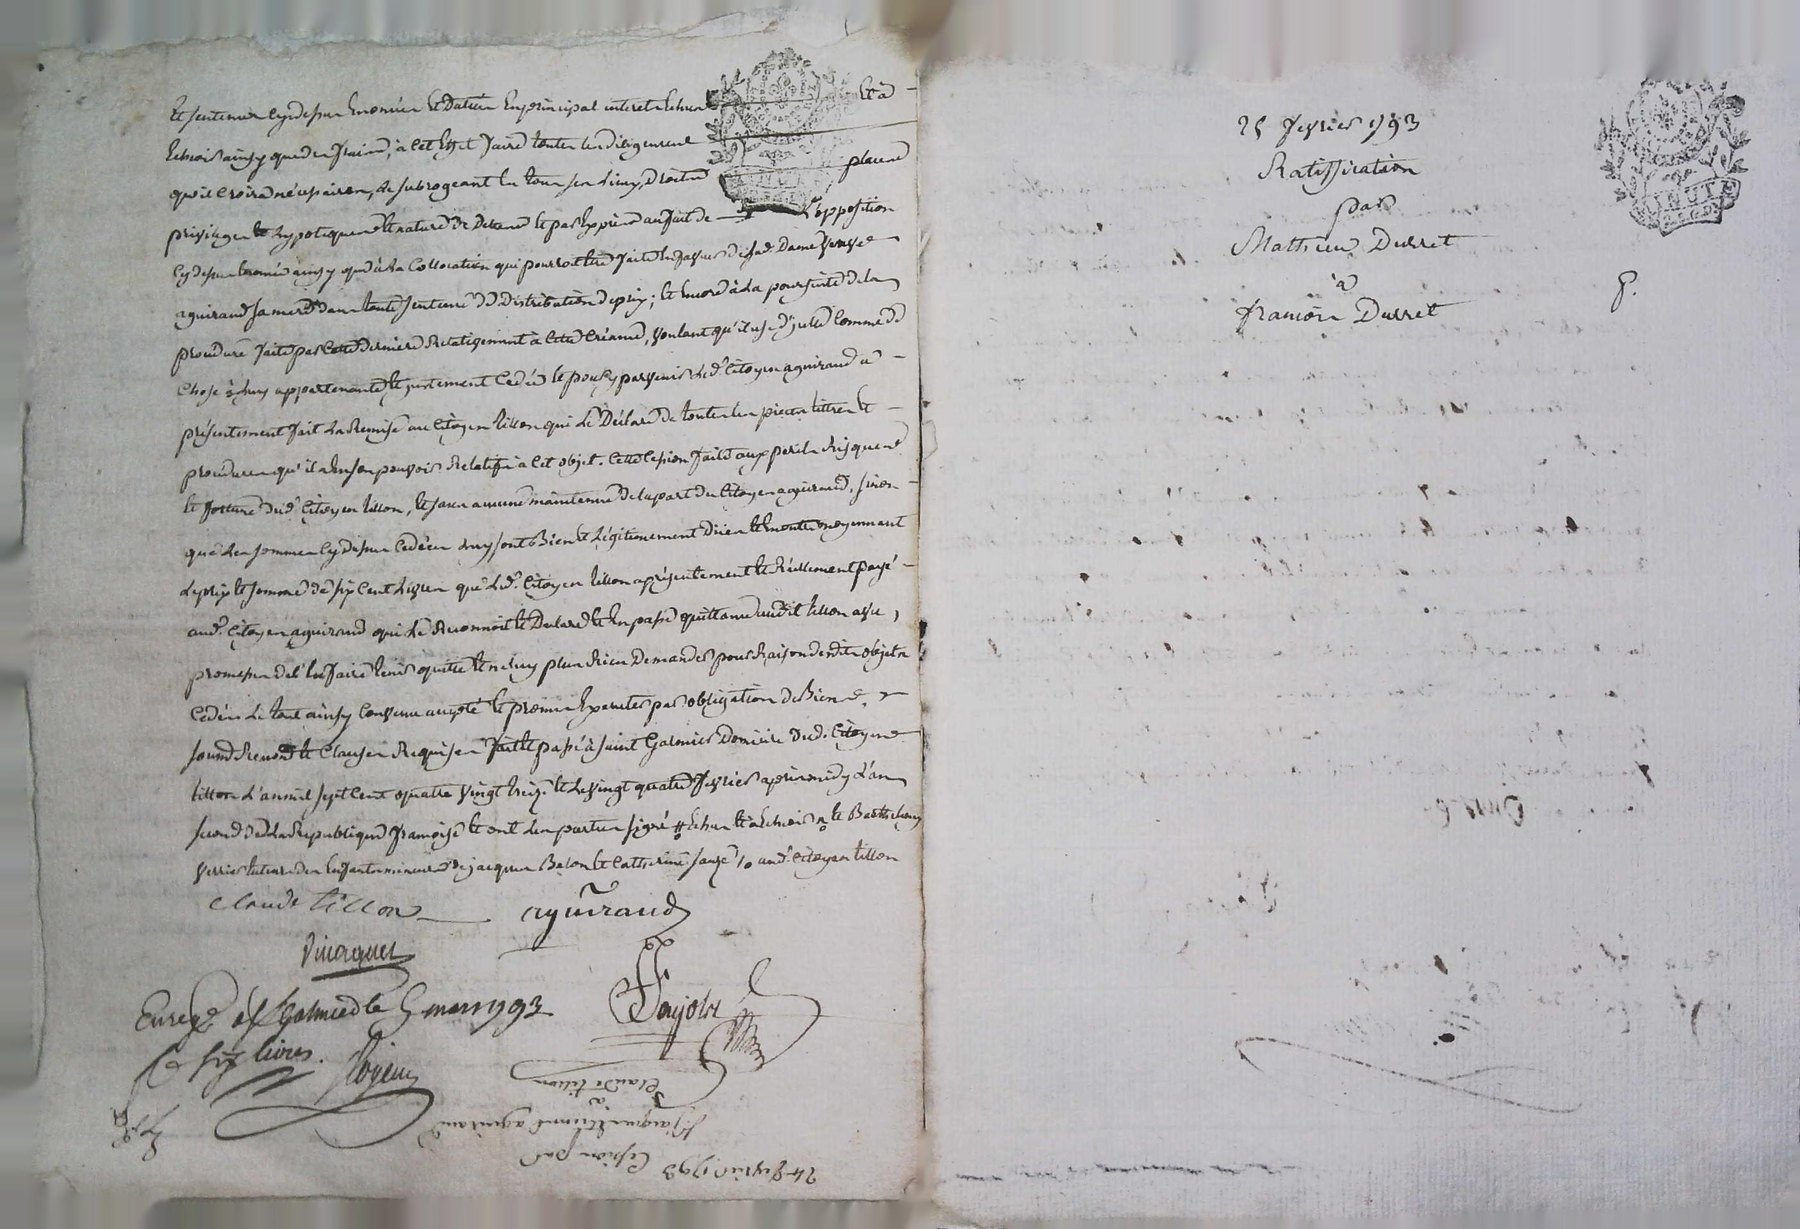 et sentences cydessus enoncées et dattées en principal interets echus et à
echoir ainsy que des fraix, à cet effet faire toutes les diligences
qu'il croira nécessaires, le subrogeant en tous ses lieux, droits place
privilege et hypoteques et nature de Dettes et par exprès au fait de L'opposition
Cydessus enoncée ainsy qu'à la Collocation qui pourroit etre faite en faveur de lad. Dame veuve
aguiraud sa mere dans toute sentence de distribution de prix; et encore à la poursuite de la
procedure faite par cette derniere Relativement à cette créance, voulant qu'il use d'icelle comme de
chose à luy appartenante et justement cedée et pour y parvenir led. Citoyen aguiraud a
présentement fait la Remise au Citoyen tillon qui le Déclare de toutes les pieces titres et
procedures qu'il a en son pouvoir Relatifs à cet objet. Cette Cession faite aux perils Risques
et fortune dud. Citoyen tillon, et sans aucune maintenue de la part du Citoyen aguiraud, sinon
que les sommes cydessus cedées luy sont Bien et Légitimement Dües et moyennant
Le prix et somme de six cent Livres que led. Citoyen tillon a présentement et Réellement payé
aud. Citoyen aguiraud qui Le Reconnoit et Declare et en passe quittance audit tillon avec
promesse de l'en faire tenir quitte et ne luy plus Rien Demander pour Raison desdits objets
Cedés Le tout ainsy convenu accepté et promis executer par obligation de Biens
soumis Renon. et Clauses Requises fait et passé à Saint Galmier Domicile dud. Citoyen
tillon L'an mil sept cent quatre vingt treize et le vingt quatre fevrier après midy L'an
second de la Republique française et ont les parties signé # echus et à echoir et Barthelemy
verrier tuteur des enfants mineurs de jacques Balon et Catherine aud. Citoyen tillon
Claude tillon aguiraud
Enreg. à St Galmier le 5 mars 1793
six livres.
24 fevrier 1793 Cession par
Jacques Etienne aguiraud
à
Claude tillon
25 fevrier 1793
Ratiffication
par
Mathieu Durret
à
françois Durret